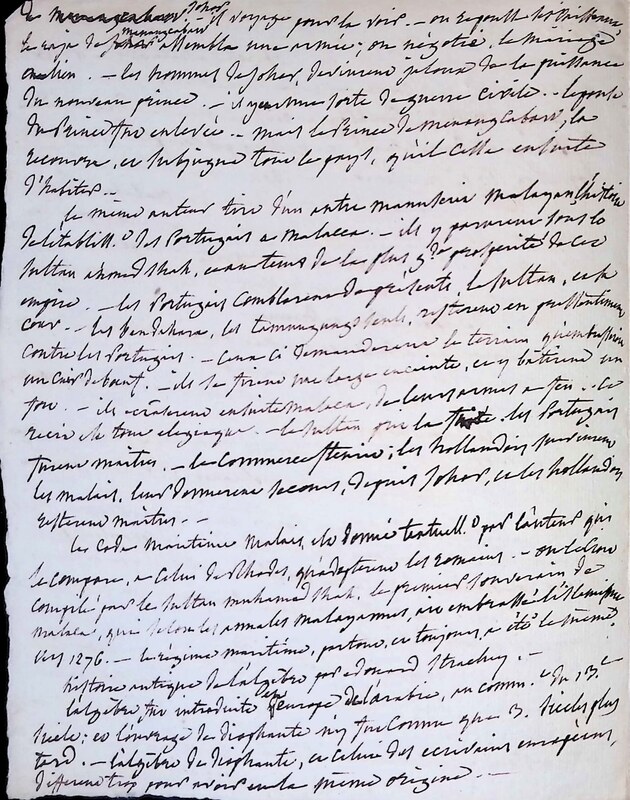 De Johor. il voyage pour la voir. — on reçoit
le raja de menangcabow assembla une armée; on négocie, le mariage
a lieu. — les hommes de Johor, devinrent jaloux de la puissance
du nouveau prince. — il y eut une sorte de guerre civile. — l'épouse
du Prince fut enlevée. — mais le Prince de menangcabow, la
recouvra, et subjugua tout le pays, qu'il cessa ensuite
d'habiter. —
le même auteur tire d'un autre manuscrit malayan l'histoire
de l'établiss.t des Portugais a malacca. — ils y parurent sous le
sultan ahmed shah, et au tems de la plus g.de prospérité de cet
empire. — les Portugais comblèrent de présents, le sultan, et sa
cour. — les bendahara, les tamungungs seuls, restèrent en
contre les Portugais. — ceux ci demandèrent le terrain qu'embrasse
un cuir de bœuf. — ils se firent une large enceinte, et y bâtirent un
fort. — ils écrasèrent ensuite malaca, de leurs armes a feu. — ce
récit est tout — le sultan prit la fuite les Portugais
furent maîtres. — le commerce fleurit; les hollandois
les malais, leur donnèrent secours, depuis Johor, et les hollandois
restèrent maîtres. —
le code maritime malais, est donné textuell.t par l'auteur qui
le compare, a celui de Rhodes, qu'adoptèrent les romains. — on le croit
compilé par le sultan muhamed shah, le premier souverain de
malaca, qui selon les annales malayannes, ait embrassé l'islamisme
vers 1276. — le régime maritime, partout, et toujours, a été le même.
histoire antique de l'algèbre par edouard Strachey. —
l'algèbre fut introduite en europe de l'arabie, au comm.t du 13.e
siècle; et l'ouvrage de diophante n'y fut connu que 3. siècles plus
tard. — l'algèbre de diophante, et celui des écrivains européens,
diffèrent trop pour avoir eu la même origine. —